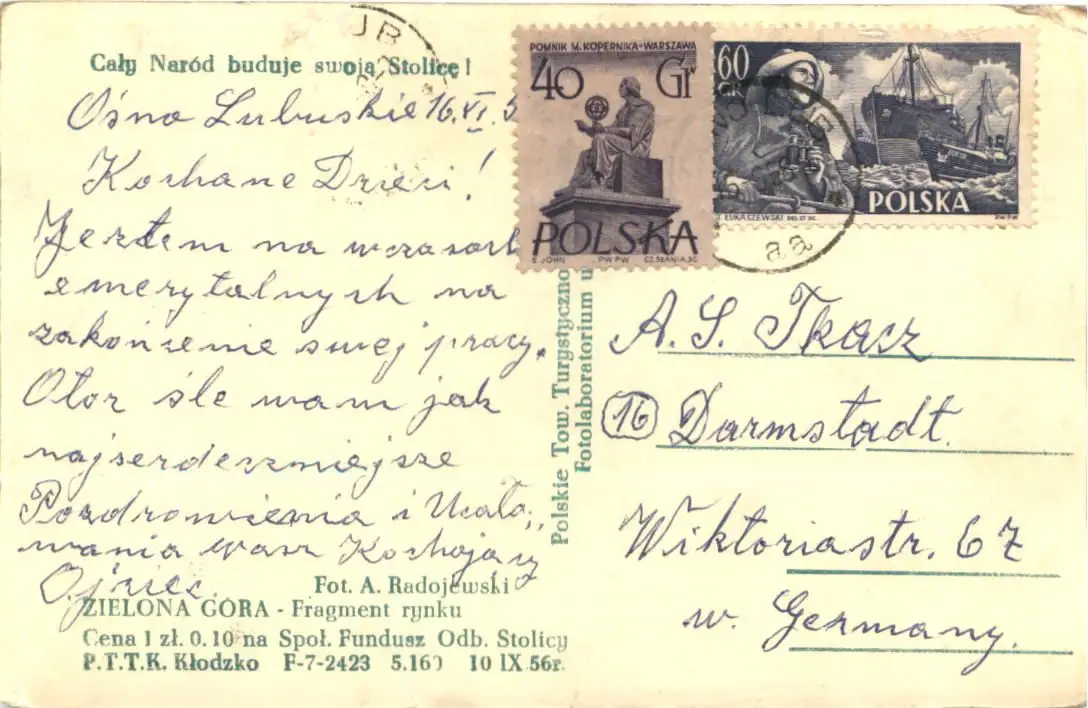 Cały Naród buduje swoją Stolicę!
Ośno Lubuskie 16.VI.5
Kochane Dzieci!
Jestem na wczasach
emerytalnych na
zakończenie swej pracy.
Otoż śle wam jak
najserdeczniejsze
Pozdrowienia i Ucało,,
wania wasz Kochający
Ojciec.
Fot. A. Radojewski
ZIELONA GÓRA - Fragment rynku
Cena 1 zł. 0.10 na Społ. Fundusz Odb. Stolicy
P.T.T.K. Kłodzko F-7-2423 5.160 10 IX.56r.
Polskie Tow. Turystyczno
Fotolaboratorium u
POMNIK M. KOPERNIKA • WARSZAWA
40 Gr
POLSKA
S. JOHN PWPW CZ. SŁANIA. SC
60
GR
POLSKA
T. ŁUKASZEWSKI DEL. ET SC. P.W.P.W.
UB
aa
A. S. Tkacz
16 Darmstadt.
Wiktoriastr. 67
w. Germany.